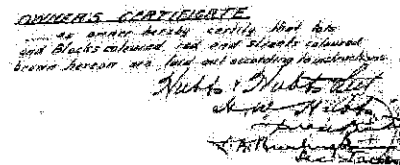 OWNER'S CERTIFICATE
as owner hereby certify that lots
and Blocks coloured red and streets coloured
brown hereon are laid out according to instructions
Hubbs & Hubbs
H. W. Hubbs
President
Sec.